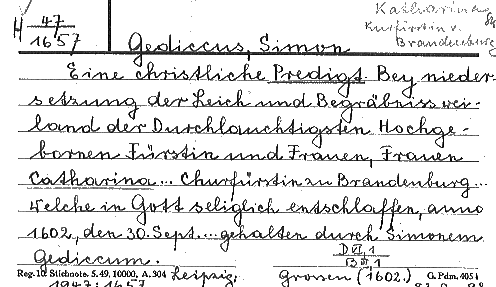 H 47/1657
Katharina
Kurfürstin v.
Brandenburg
Gediccus, Simon
Eine christliche Predigt. Bey nieder-
setzung der Leich und Begräbniss wei-
land der Durchlauchtigsten Hochge-
bornen Fürstin und Frauen, Frauen
Catharina... Churfürstin zu Brandenburg...
welche in Gott seliglich entschlaffen, anno
1602, den 30. Sept.... gehalten durch Simonem
Gediccum.
Reg.-10 Stichnote. 5. 49, 10000, A. 304 Leipzig, Grossen (1602.) G. Pdm. 4051
1947:1657